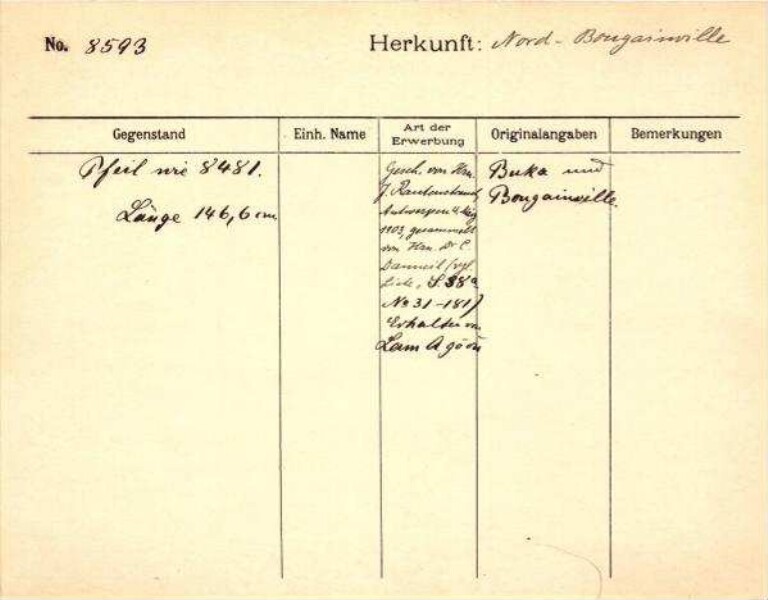 No. 8593
Herkunft: Nord-Bougainville
Gegenstand
Einh. Name
Art der
Erwerbung
Originalangaben
Bemerkungen
Pfeil wie 8481.
Länge 146,6 cm
Gesch. von Hrn.
J. Rautenstrauch
Antwerpen
1903, gesammelt
von Hrn. Dr C.
Danneil (vgl.
Liste, S. 38a
No 31-181)
Erhalten von
Lam
Buka und
Bougainville.